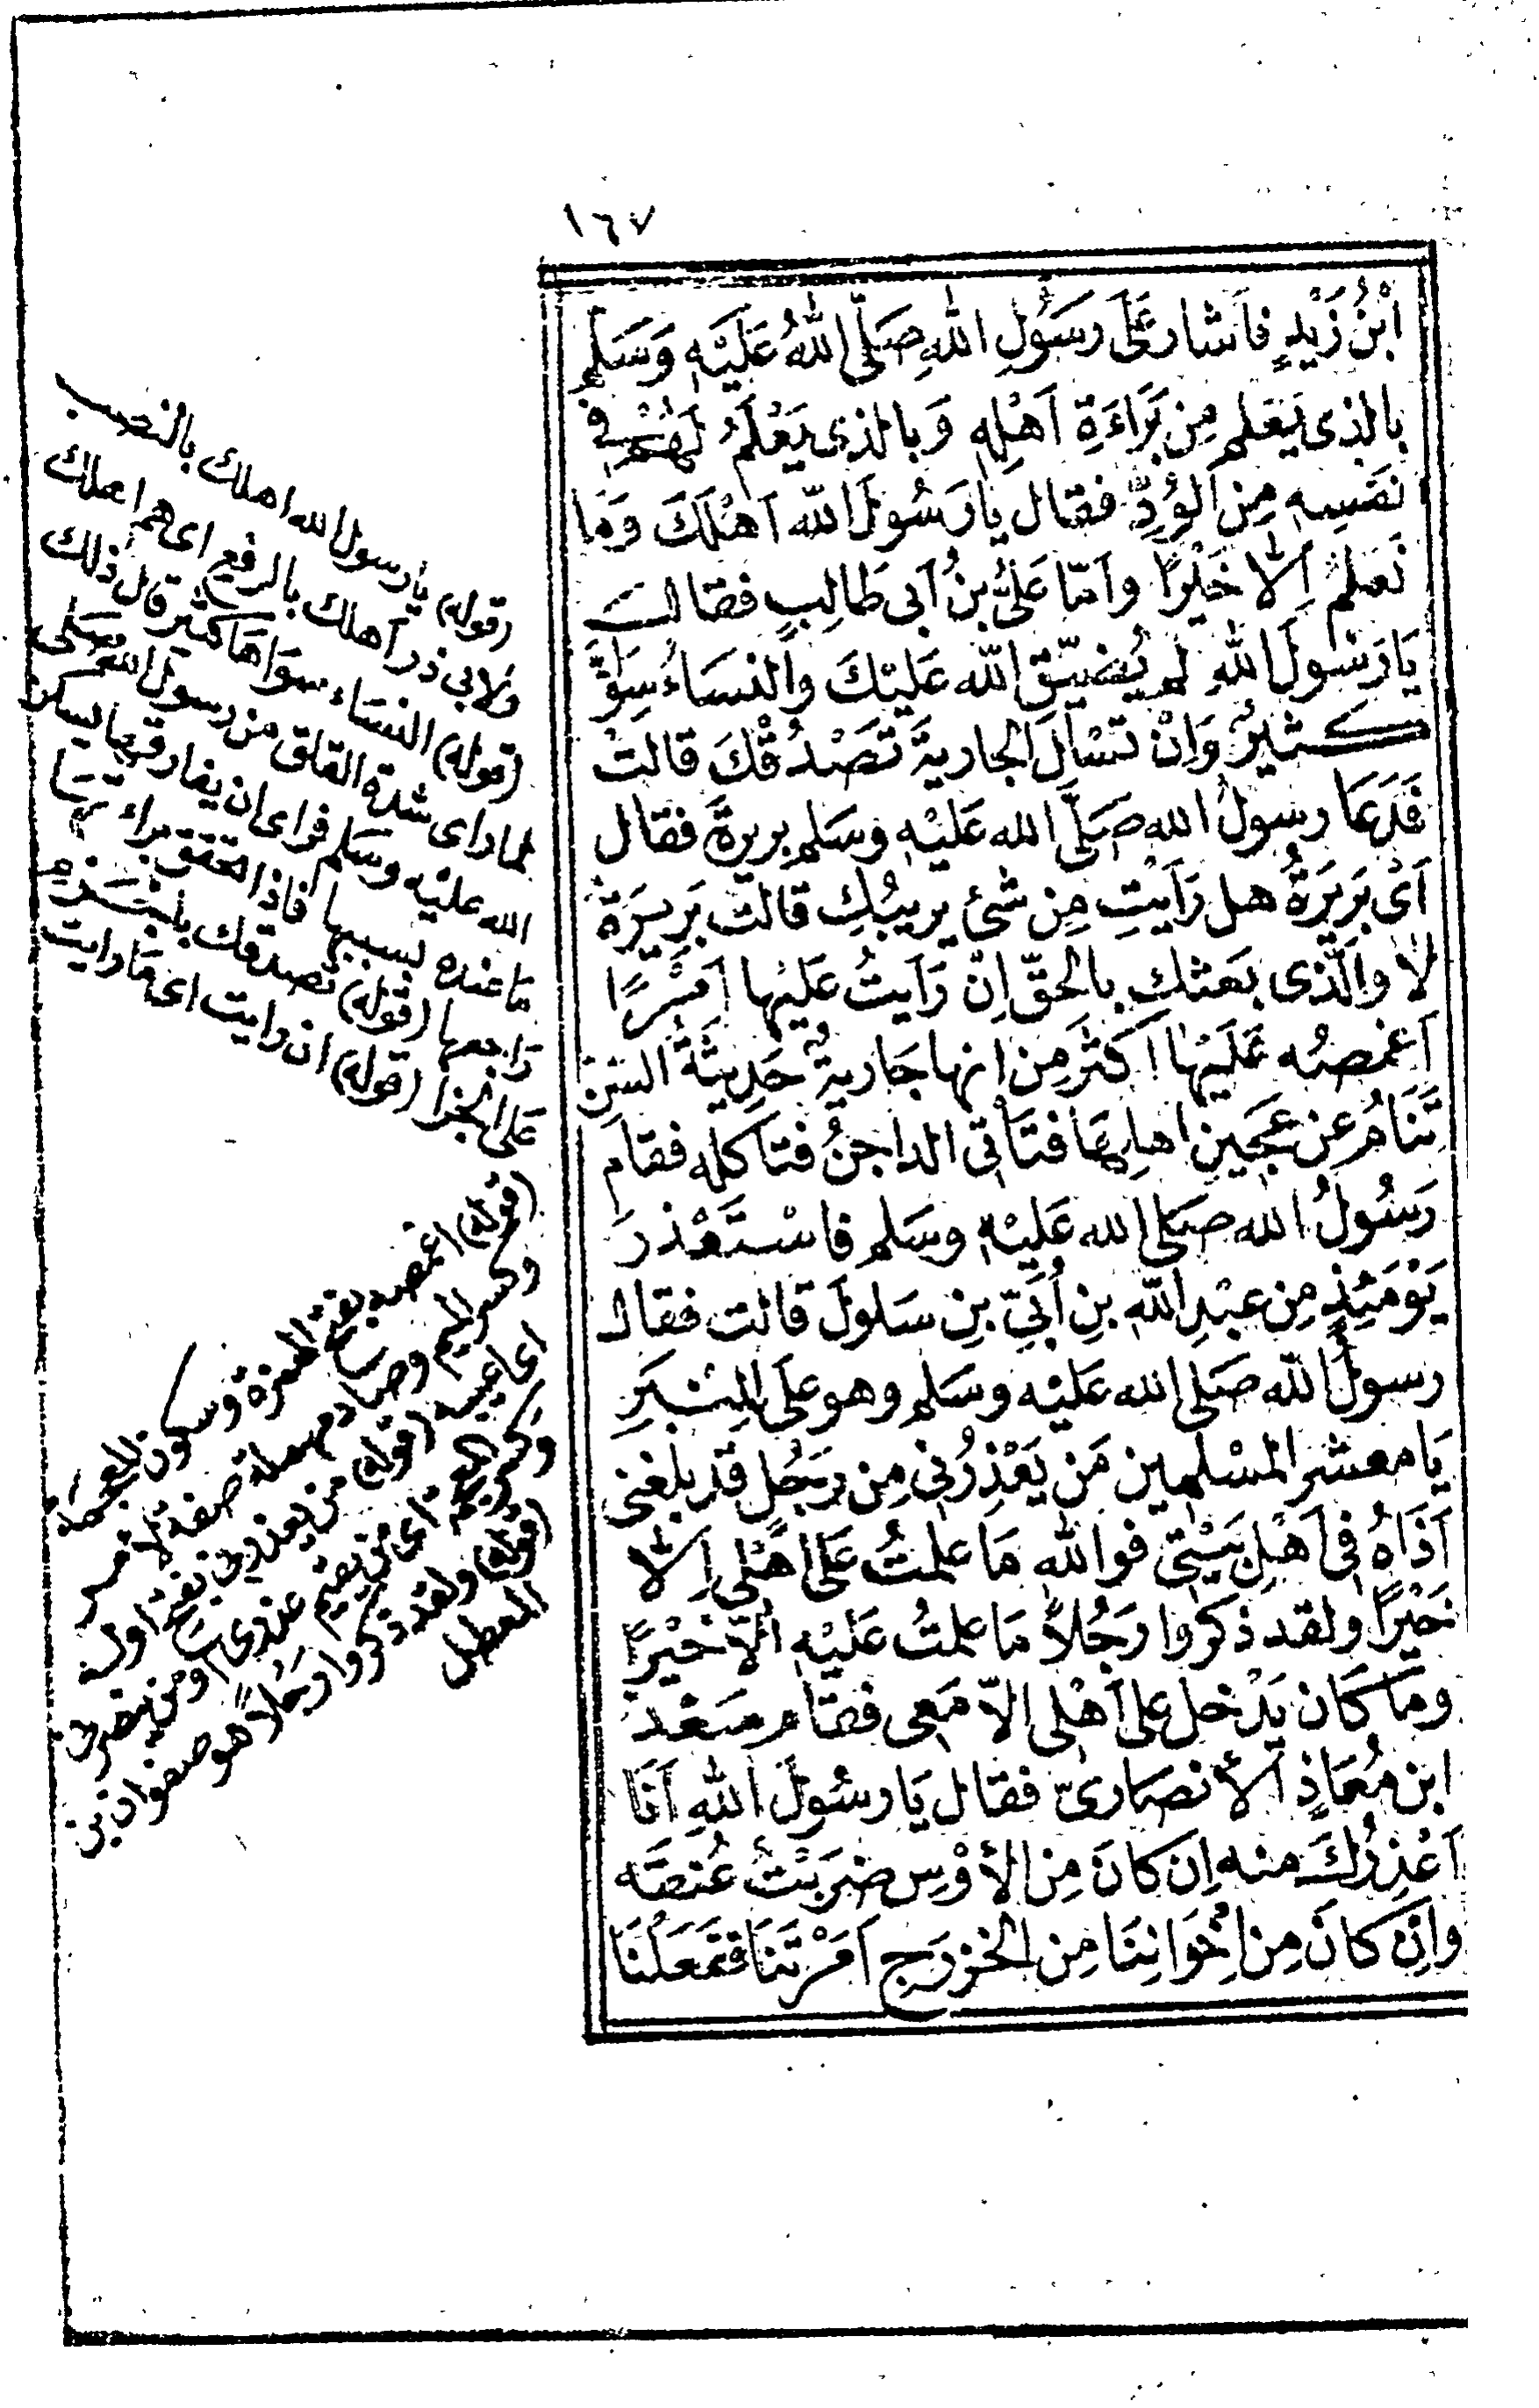 ١٦٧
ابْنُ زَيْدٍ فاَشار عَلَى رسَولِ اللهِ صَلَّى اللهُ عَلَيْهِ وَسَلَّم
بالذى يَعْلم مِن بَرَاءَةِ اَهْلِهِ وَبالذى يَعْلَمُ لَهُمْ فى
نفسِه مِنَ الوُدِّ فقال يا رَسُولَ اللّٰه اَهْلَكَ وَمَا
نَعلمُ اِلاّ خَيْرًا واَمّا عَلىُّ بنُ اَبى طَالِبٍ فقالَ
يَا رَسُولَ اللهِ لم يُضيّقِ اللّٰه عَليْكَ والنسَاءُ سِوَاهَا
كَثيرٌ وَاِنْ تَسْاَلَ الجاريةَ تَصْدُقْكَ قالتْ
فَدَعَا رسولُ الله صَلَّى الله عَلَيْهِ وسَلم بريرةَ فقال
اَىْ بَرِيَرةُ هل رَاَيْتِ مِن شئ يريبُكِ قالت بَرِيرَةُ
لا والَّذى بَعَثك بالحَقّ اِنْ رَاَيتُ عَليْها اَمْرًا
اَغمصُه عَلَيْهَا اَكثَر مِن انها جَاريةٌ حَدِيثَةُ السّنّ
تَنَامُ عن عَجِينِ اهلِهَا فتَاْتى الداجنُ فتاكله فقام
رَسُولُ الله صَلى الله عَليْهِ وسَلم فاسْتَعْذرَ
يَوْمَئِذٍ مِن عبْدِ اللّٰه بنِ اُبَىّ بنِ سَلولَ قالت فقال
رسولُ اللّٰه صَلى الله عَليْه وسَلم وهو عَلَى المِنْبَرِ
يَا معشر المسْلمين مَن يَعْذِرُنى مِن رَجُلٍ قد بلغنى
اَذَاهُ فى اَهْلِ بَيْتى فوالله مَا علمتُ عَلى اَهْلى اِلاّ
خَيْرًا ولقد ذكروا رَجُلاً مَا علمتُ عَليْهِ اِلاّ خَيْرًا
ومَا كَان يَدْخل على اَهْلى الاّ مَعى فقَام سَعْد
ابن مُعَاذٍ الأنصَارىّ فقال يَا رسُولَ اللهِ اَنَا
اَعْذِرُكَ منه اِن كانَ مِنَ الأوْسِ ضَربْتُ عُنقَه
واِن كانَ مِن اِخْوَانِنَا مِن الخزرَجِ اَمَرْتَنَا ففَعَلْنَا
(قوله) يا رسول الله اهلك بالنصب
ولابى ذر اهلك بالرفع اى هم اهلك
(قوله) النسَاء سوَاهَا كثير قال ذلك
لما راى شدة القلق من رسول الله صلى
الله عليْه وسَلم فراى ان يفارقها ليسكن
مَا عنده بسببها فاذا تحقق براءتها
رَاجعها (قوله) تصدقك بالجَزم
عَلى الجزا (قوله) ان رايت اى مَا رايت
(قوله) اغمصه بفتح الهمزة وسكون المعجمة
وكسر الميم وصاد مهملة صفة لامر
اى اعيبه (قوله) من يعذرنى بفتح اوله
وكسر المعجمة اى من يقيم عذرى او من ينصرنى
(قوله) ولقد ذكروا رجُلاً هو صفوان بن
المعطل